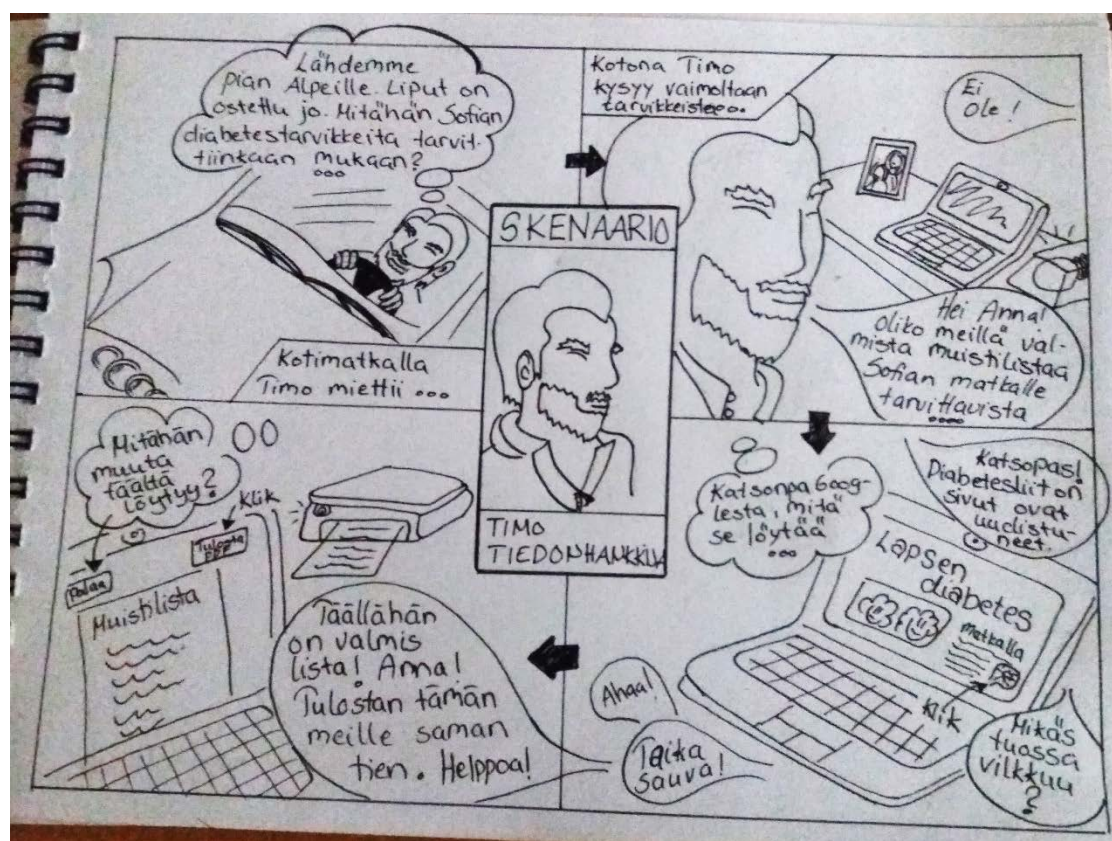 Lähdemme
pian Alpeille. Liput on
ostettu jo. Mitähän Sofian
diabetestarvikkeita tarvit-
tiinkaan mukaan?
...
Kotimatkalla
Timo miettii ...
Kotona Timo
kysyy vaimoltaan
tarvikkeista...
Ei
ole!
Hei Anna!
Oliko meillä val-
mista muistilistaa
Sofian matkalle
tarvittavista
....
SKENAARIO
TIMO
TIEDONHANKKIJA
Katsonpa Goog-
lesta, mitä
se löytää
...
Katsopas!
Diabetesliiton
sivut ovat
uudistu-
neet.
Lapsen
diabetes
matkalla
klik
Mikäs
tuossa
vilkkuu
?
Ahaa!
Taika
sauva!
Täällähän
on valmis
lista! Anna!
Tulostan tämän
meille saman
tien. Helppoa!
Mitähän
muuta
täältä
löytyy?
Klik
Tulosta
Palaa
Muistilista